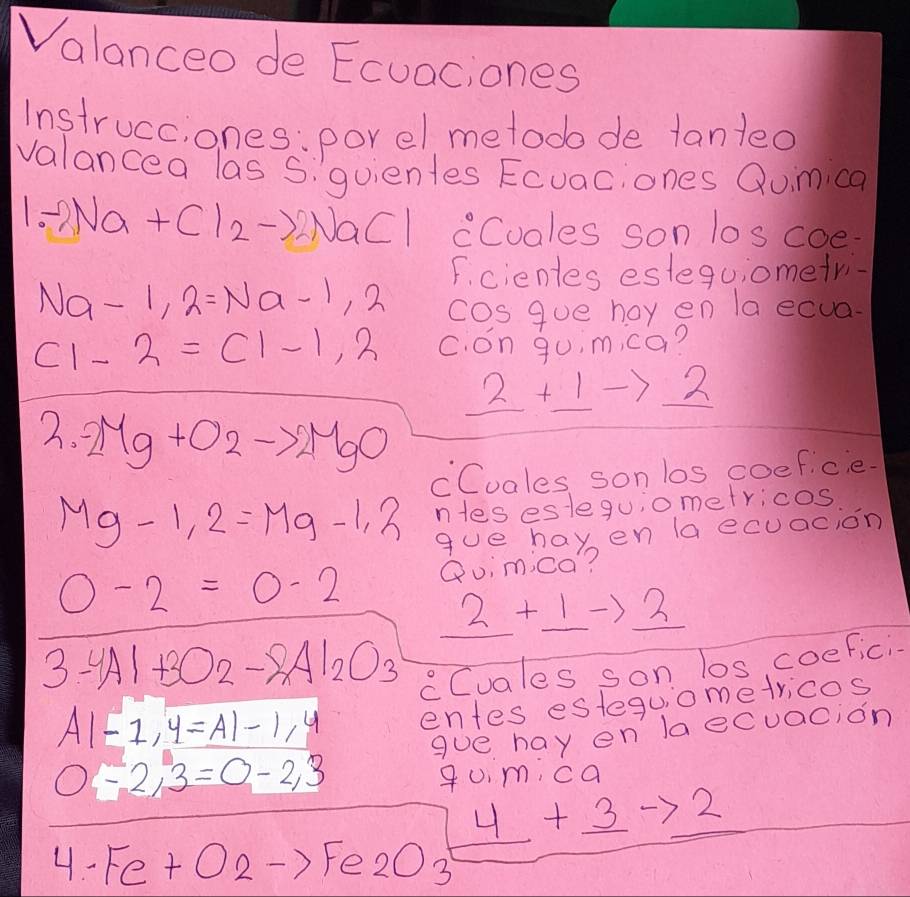 Valanceo de Ecuaciones
Instrucciones: por el metodo de tanteo
valancea las siguientes Ecuaciones Quimica
1.-2Na + Cl2 -> 2NaCl
Na - 1, 2 = Na - 1, 2
Cl - 2 = Cl - 1, 2
¿Cuales son los coe-
ficientes estequiometri-
cos que hay en la ecua-
ción quimica?
2 + 1 -> 2
2.-2Mg + O2 -> 2MgO
Mg - 1, 2 = Mg - 1, 2
O - 2 = O - 2
¿Cuales son los coeficie-
ntes estequiometricos
que hay en la ecuación
Quimica?
2 + 1 -> 2
3-4Al + 3O2 - 2Al2O3
Al - 1, 4 = Al - 1, 4
O - 2, 3 = O - 2, 3
¿Cuales son los coefici-
entes estequiometricos
que hay en la ecuación
quimica
4 + 3 -> 2
4.-Fe + O2 -> Fe2O3